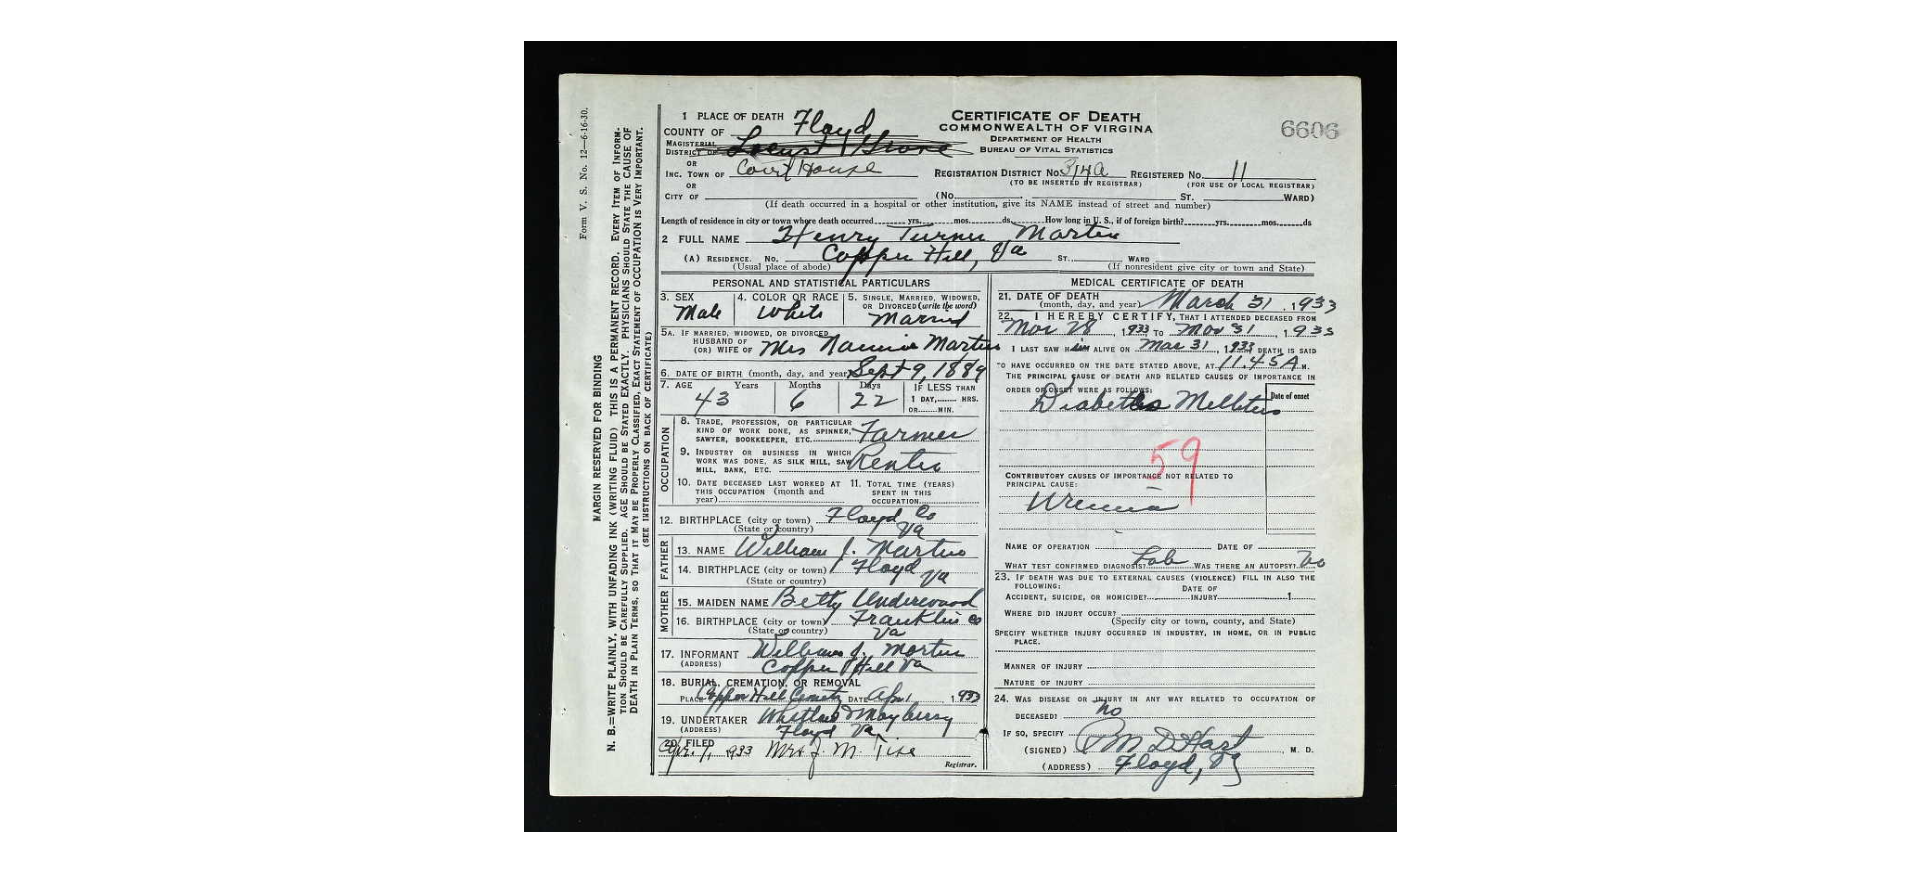 Form V. S. No. 12—6-16-30.
MARGIN RESERVED FOR BINDING
N. B.=WRITE PLAINLY, WITH UNFADING INK (WRITING FLUID) THIS IS A PERMANENT RECORD. EVERY ITEM OF INFORM-
TION SHOULD BE CAREFULLY SUPPLIED. AGE SHOULD BE STATED EXACTLY. PHYSICIANS SHOULD STATE THE CAUSE OF
DEATH IN PLAIN TERMS, SO THAT IT MAY BE PROPERLY CLASSIFIED. EXACT STATEMENT OF OCCUPATION IS VERY IMPORTANT.
(SEE INSTRUCTIONS ON BACK OF CERTIFICATE)
1 PLACE OF DEATH
COUNTY OF Floyd
MAGISTERIAL
DISTRICT OF Locust Grove
OR
INC. TOWN OF Court House
OR
CITY OF
CERTIFICATE OF DEATH
COMMONWEALTH OF VIRGINIA
DEPARTMENT OF HEALTH
BUREAU OF VITAL STATISTICS
6606
REGISTRATION DISTRICT No. 314a REGISTERED No. 11
(TO BE INSERTED BY REGISTRAR) (FOR USE OF LOCAL REGISTRAR)
(No. ST. WARD)
(If death occurred in a hospital or other institution, give its NAME instead of street and number)
Length of residence in city or town where death occurred yrs. mos. ds. How long in U. S., if of foreign birth? yrs. mos. ds
2 FULL NAME Henry Turner Martin
(A) RESIDENCE. No. Copper Hill, Va ST. WARD
(Usual place of abode) (If nonresident give city or town and State)
PERSONAL AND STATISTICAL PARTICULARS
3. SEX Male
4. COLOR OR RACE White
5. SINGLE, MARRIED, WIDOWED,
OR DIVORCED (write the word)
Married
5A. IF MARRIED, WIDOWED, OR DIVORCED
HUSBAND OF
(OR) WIFE OF Mrs Nannie Martin
6. DATE OF BIRTH (month, day, and year) Sept 9, 1889
7. AGE Years Months Days IF LESS THAN
1 DAY, HRS.
OR MIN.
43 6 22
OCCUPATION
8. TRADE, PROFESSION, OR PARTICULAR
KIND OF WORK DONE, AS SPINNER,
SAWYER, BOOKKEEPER, ETC. Farmer
9. INDUSTRY OR BUSINESS IN WHICH
WORK WAS DONE, AS SILK MILL, SAW
MILL, BANK, ETC. Renter
10. DATE DECEASED LAST WORKED AT
THIS OCCUPATION (month and
year)
11. TOTAL TIME (YEARS)
SPENT IN THIS
OCCUPATION
12. BIRTHPLACE (city or town) Floyd Co
(State or country) Va
FATHER
13. NAME William J. Martin
14. BIRTHPLACE (city or town) Floyd
(State or country) Va
MOTHER
15. MAIDEN NAME Betty Underwood
16. BIRTHPLACE (city or town) Franklin Co
(State or country) Va
17. INFORMANT William J. Martin
(ADDRESS) Copper Hill Va
18. BURIAL, CREMATION, OR REMOVAL
PLACE Copper Hill Cemety DATE Apr 1 1933
19. UNDERTAKER Mayberry
(ADDRESS) Floyd Va
20. FILED Apr. 1, 1933 Mrs J. M. Tise
Registrar.
MEDICAL CERTIFICATE OF DEATH
21. DATE OF DEATH
(month, day, and year) March 31, 1933
22. I HEREBY CERTIFY, THAT I ATTENDED DECEASED FROM
Mar 28, 1933 TO Mar 31, 1933
I LAST SAW HIM ALIVE ON Mar 31, 1933 DEATH IS SAID
TO HAVE OCCURRED ON THE DATE STATED ABOVE, AT 11.45 A M.
THE PRINCIPAL CAUSE OF DEATH AND RELATED CAUSES OF IMPORTANCE IN
ORDER OF ONSET WERE AS FOLLOWS:
Date of onset
Diabetes Mellitus
59
CONTRIBUTORY CAUSES OF IMPORTANCE NOT RELATED TO
PRINCIPAL CAUSE:
Uremia
NAME OF OPERATION DATE OF
WHAT TEST CONFIRMED DIAGNOSIS? Lab WAS THERE AN AUTOPSY? No
23. IF DEATH WAS DUE TO EXTERNAL CAUSES (VIOLENCE) FILL IN ALSO THE
FOLLOWING:
ACCIDENT, SUICIDE, OR HOMICIDE? DATE OF
INJURY 1
WHERE DID INJURY OCCUR?
(Specify city or town, county, and State)
SPECIFY WHETHER INJURY OCCURRED IN INDUSTRY, IN HOME, OR IN PUBLIC
PLACE.
MANNER OF INJURY
NATURE OF INJURY
24. WAS DISEASE OR INJURY IN ANY WAY RELATED TO OCCUPATION OF
DECEASED? no
IF SO, SPECIFY
(SIGNED) M. D.
(ADDRESS) Floyd, Va